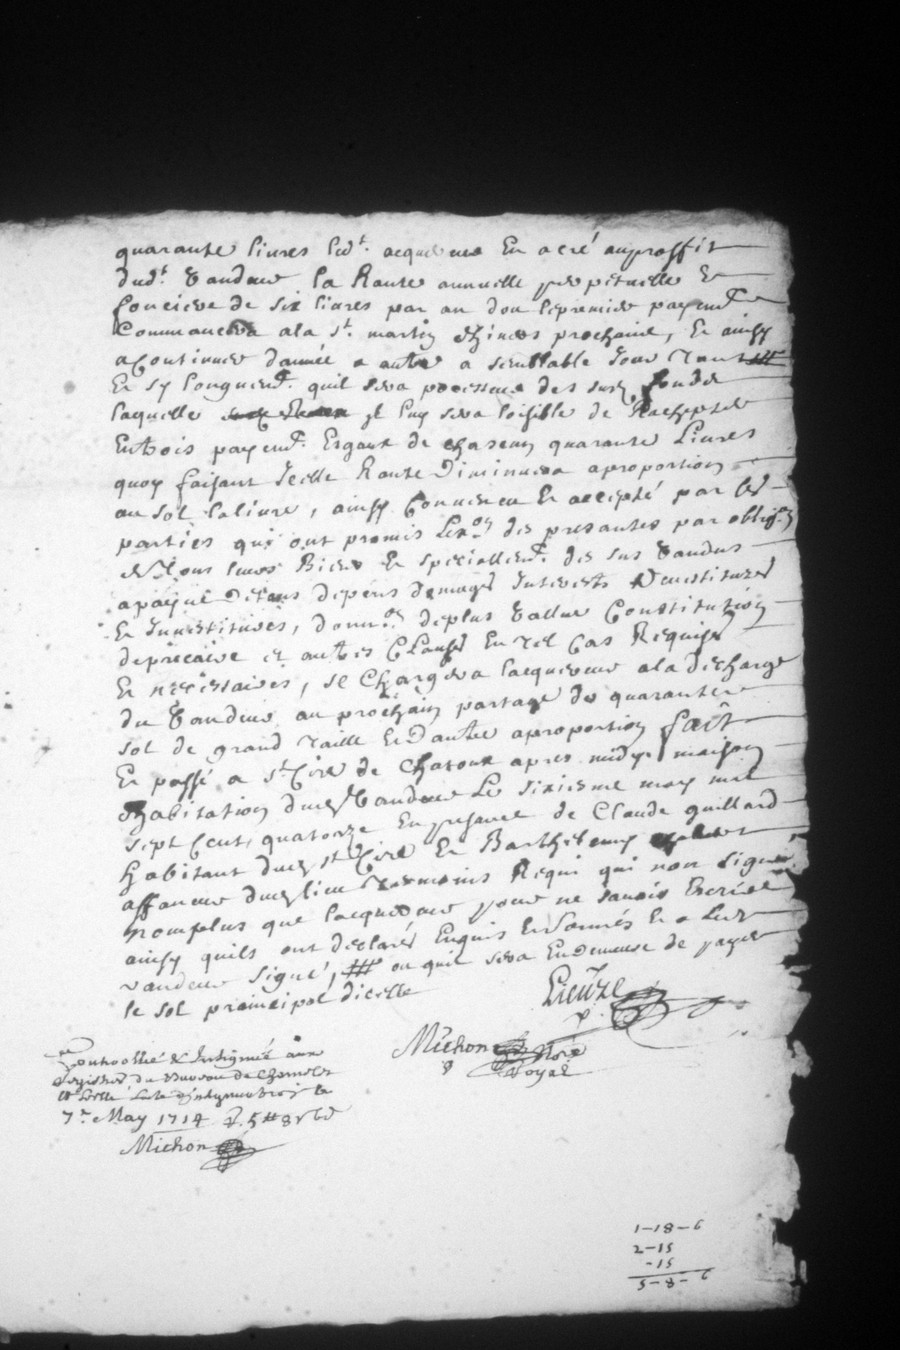 quarante livres led.t acquereur En acré auproffit
dud.t Vandeur la Rante annuelle perpetuelle Et
fonciere de six livres par an don lepremier payemt
Commancera ala st. martin dhivers prochaine, Et ainsy
a Continuer dannée a autre a semblable Jour
Et sy longuemt. quil sera possesseur des susd fonds
laquelle Il luy sera loisible de Rachepter
Entrois payemt. Esgaux de chascun quarante Livres
quoy faisant Icelle Rante Diminuera aproportion
au sol lalivre, ainsy Convenu Et accepté par les
parties qui ont promis des presantes par oblig.on
de tous leurs Biens Et speciallemt. des sus Vandus
a payne De tous depens domages Interests
Et Investitures, deplus Vallue Constitution
deprecaire et autres Clauses En tel Cas Requises
Et necessaires, se Chargera lacquereur ala descharge
du Vandeur au prochain partage de quarante
sol de grand taille Et Dautre aproportion fait
Et passé a st Cire de Chatoux apres midy maison
dhabitation dud Vandeur Le sixiesme may mil
sept Cent quatorze En presance de Claude guillard
habitant dud st Cire Et Barthelemy
affaneur dud lieu tesmoins Requi qui non signe
nomplus que lacquereur pour ne savoir Escrire
ainsy quils ont declarés Enquis Et somés Et a Led
vandeur signé, ou quil sera En demeure de payer
le sol principal dicelle
Lieuze
Michon
Nore
Royal
Controllé & Insignué aux
Registres du Bureau de Chamelet
7.e May 1714
Michon
1-18-6
2-15
-15
5-8-6